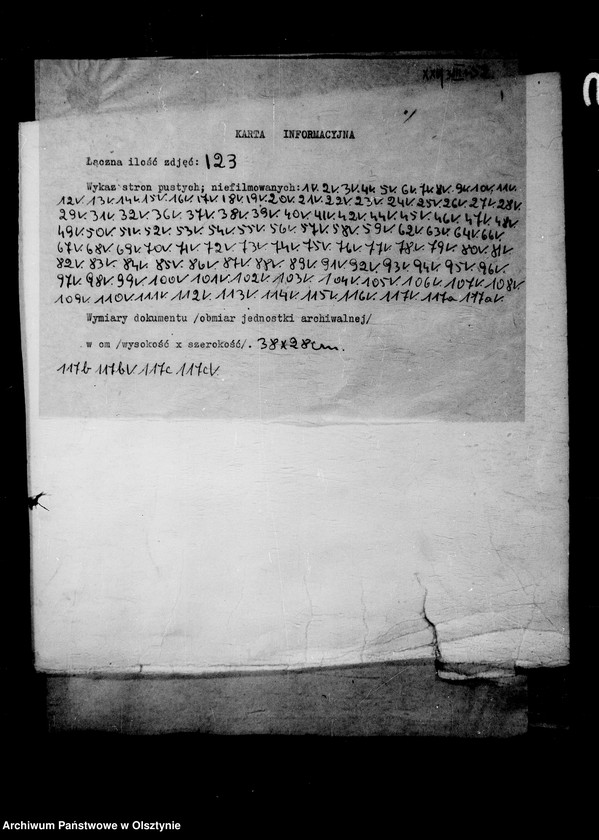 KARTA INFORMACYJNA
Łączna ilość zdjęć: 123
Wykaz stron pustych; niefilmowanych: 1v. 2v. 3v. 4v. 5v. 6v. 7v. 8v. 9v. 10v. 11v.
12v. 13v. 14v. 15v. 16v. 17v. 18v. 19v. 20v. 21v. 22v. 23v. 24v. 25v. 26v. 27v. 28v.
29v. 31v. 32v. 36v. 37v. 38v. 39v. 40v. 41v. 42v. 44v. 45v. 46v. 47v. 48v.
49v. 50v. 51v. 52v. 53v. 54v. 55v. 56v. 57v. 58v. 59v. 62v. 63v. 64v. 66v.
67v. 68v. 69v. 70v. 71v. 72v. 73v. 74v. 75v. 76v. 77v. 78v. 79v. 80v. 81v.
82v. 83v. 84v. 85v. 86v. 87v. 88v. 89v. 91v. 92v. 93v. 94v. 95v. 96v.
97v. 98v. 99v. 100v. 101v. 102v. 103v. 104v. 105v. 106v. 107v. 108v.
109v. 110v. 111v. 112v. 113v. 114v. 115v. 116v. 117v. 117a 117av.
Wymiary dokumentu /obmiar jednostki archiwalnej/
w cm /wysokość x szerokość/. 38x28cm.
117b 117bv 117c 117cv
Archiwum Państwowe w Olsztynie